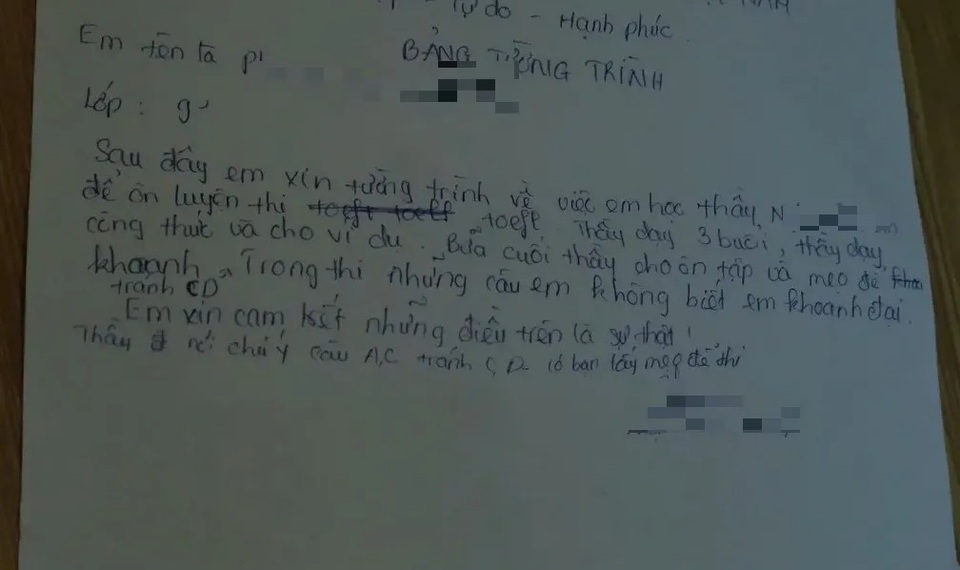 Tự do - Hạnh phúc
BẢNG TƯỜNG TRÌNH
Em tên là
Lớp : 9
Sau đây em xin tường trình về việc em học thầy N
để ôn luyện thi toefl. Thầy dạy 3 buổi, thầy dạy
công thức và cho ví dụ. Bữa cuối thầy cho ôn tập và mẹo để
khoanh. Trong thi những câu em không biết em khoanh đại.
tránh CD
Em xin cam kết những điều trên là sự thật!
Thầy nói chú ý câu A,C tránh C,D. có bạn lấy mẹo để thi